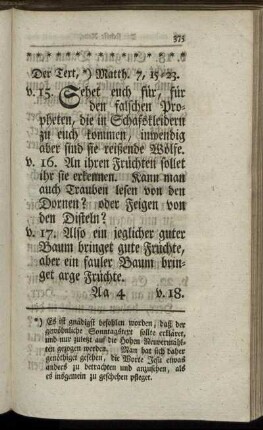 375
* * * * * * * * * * * * * * * *
Der Text, *) Matth. 7, 15-23.
v. 15. Sehet euch für, für
den falschen Pro-
pheten, die in Schafskleidern
zu euch kommen, inwendig
aber sind sie reißende Wölfe.
v. 16. An ihren Früchten sollet
ihr sie erkennen. Kann man
auch Trauben lesen von den
Dornen? oder Feigen von
den Disteln?
v. 17. Also ein jeglicher guter
Baum bringet gute Früchte,
aber ein fauler Baum brin-
get arge Früchte.
Aa 4 v. 18.
*) Es ist gnädigst befohlen worden, daß der
gewöhnliche Sonntagstext sollte erkläret,
und nur zuletzt auf die Hohen Neuvermähl-
ten gezogen werden. Man hat sich daher
genöthiget gesehen, die Worte Jesu etwas
anders zu betrachten und anzusehen, als
es insgemein zu geschehen pfleget.